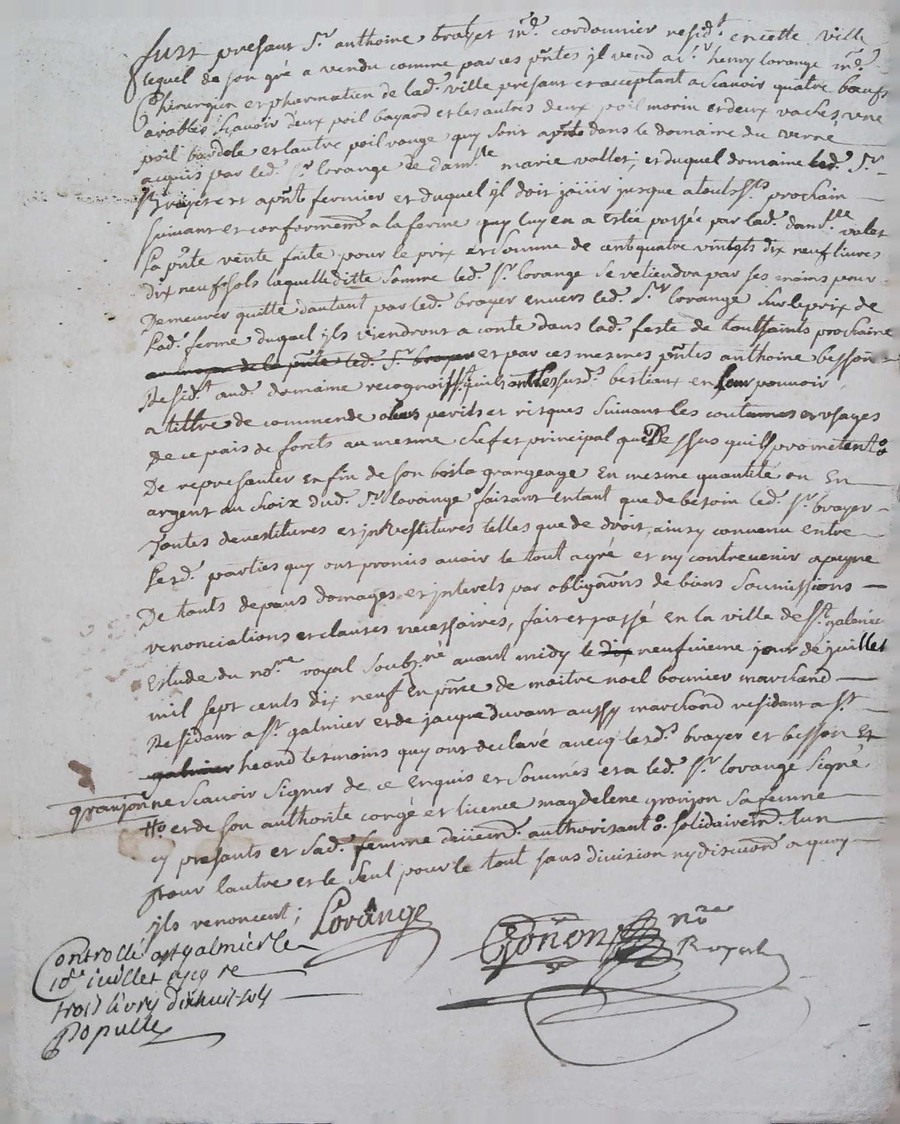 fust presant Sr. anthoine brayer md. cordonnier residt. en cette ville
lequel de son gré a vendu comme par ces pntes il vend a sr. henry lorange md.
Chirurgien et pharmatien de lad. ville presant et acceptant a Scavoir quatre bœufs
arables Scavoir deux poil bayard et les autres deux poil morin et deux vaches, une
poil bardele et lautre poil rouge quy sont apnt dans le domaine du verne
acquis par led. Sr. lorange de damlle marie vallet, et duquel domaine led. Sr.
Brayer est apnt fermier et duquel il doit joüir jusque a touts Sts. prochain
suivant et conformemt. a la ferme quy luy en a estée passée par lad. damlle. valet
La pnte vente faite pour le prix et Somme de cent quatre vintgts dix neuf livres
dix neuf sols laquelle ditte Somme led. Sr. lorange Se retiendra par Ses mains pour
Demeurer quitte dautant par led. brayer envers led. Sr. lorange Sur le prix de
Lad. ferme duquel ils viendront a conte dans lad. feste de toussaints prochaine
au moyen de la pnte led. Sr. brayer et par ces mesmes pntes anthoine besson
Residt. aud. domaine recognoist les susd. bestiaux en leur pouvoir
a tiltre de commende a leurs perils et risques Suivant les coutumes et usages
de ce païs de forets au mesme chef et principal que Dessus quils prometent
De representer en fin de son bail a grangeage En mesme quantité ou En
argent au choix dud. Sr. lorange faisant entant que de besoin led. Sr. brayer
Toutes devestitures et investitures telles que de droit, ainsy convenu entre
lesd. parties quy ont promis avoir le tout agré et ny contrevenir a payne
De touts depans domages et interets par obligaons de biens Soumissions
renonciations et clauses necessaires, fait et passé En la ville de St. galmier
Estude du nore. royal Soubzné avant midy le dix neufvieme jour de juillet
mil sept cents dix neuf En pnce de maitre noel bounier marchand
Residant a St. galmier et de jacque durant aussy marchand residant a St.
galmier heand tesmoins quy ont declaré avecq lesd. brayer et besson Et
granjon ne Scavoir Signer de ce Enquis et Sommés et a led. Sr. lorange Signé
Ho et de son authorite congé et licence magdelene granjon Sa femme
cy presants et Sad. femme authorisant o. Solidairemt. lun
pour lautre et le Seul pour le tout sans division ny discuon a quoy
ils renoncent; Lorange
Gonon nre Royal
Controllé a st galmier le
10e. juillet 1719 Re
trois livres dixhuit sols
Populle